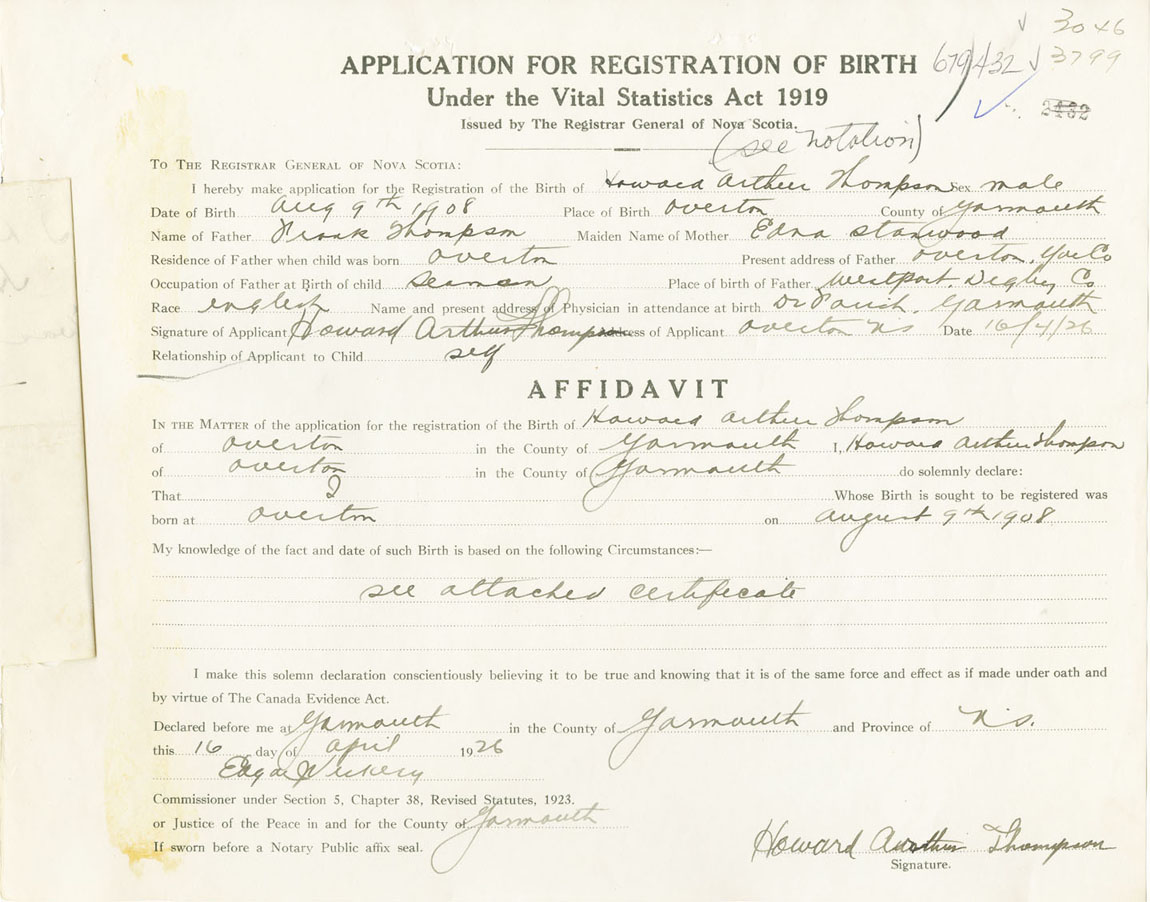 3046
APPLICATION FOR REGISTRATION OF BIRTH 679/432 3799
Under the Vital Statistics Act 1919 2432
Issued by The Registrar General of Nova Scotia.
(see notation)
TO THE REGISTRAR GENERAL OF NOVA SCOTIA:
I hereby make application for the Registration of the Birth of Howard Arthur Thompson Sex male
Date of Birth Aug 9th 1908 Place of Birth Overton County of Yarmouth
Name of Father Frank Thompson Maiden Name of Mother Edna Stanwood
Residence of Father when child was born Overton Present address of Father Overton, Yar Co
Occupation of Father at Birth of child Seaman Place of birth of Father Westport, Digby Co
Race english Name and present address of Physician in attendance at birth Dr Parish, Yarmouth
Signature of Applicant Howard Arthur Thompson Address of Applicant Overton NS Date 16/4/26
Relationship of Applicant to Child self
AFFIDAVIT
IN THE MATTER of the application for the registration of the Birth of Howard Arthur Thompson
of Overton in the County of Yarmouth I, Howard Arthur Thompson
of Overton in the County of Yarmouth do solemnly declare:
That I Whose Birth is sought to be registered was
born at Overton on August 9th 1908
My knowledge of the fact and date of such Birth is based on the following Circumstances:—
see attached certificate
I make this solemn declaration conscientiously believing it to be true and knowing that it is of the same force and effect as if made under oath and
by virtue of The Canada Evidence Act.
Declared before me at Yarmouth in the County of Yarmouth and Province of N.S.
this 16 day of April 1926
Edgar Vickery
Commissioner under Section 5, Chapter 38, Revised Statutes, 1923.
or Justice of the Peace in and for the County of Yarmouth
If sworn before a Notary Public affix seal.
Howard Arthur Thompson
Signature.